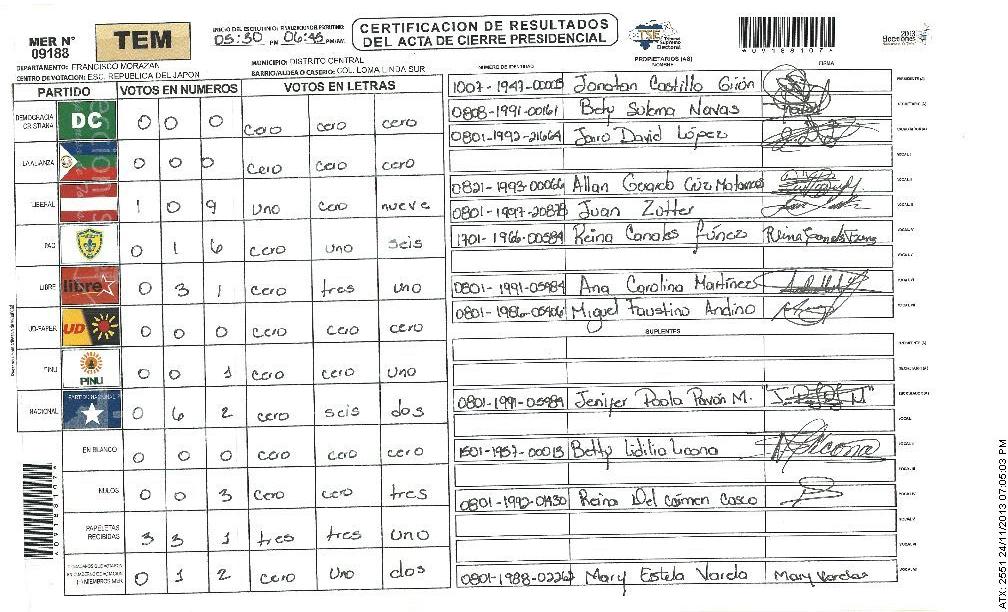 MER N°
09188
TEM
INICIO DEL ESCRUTINIO: FINALIZACION DEL ESCRUTINIO:
05:30 PM 06:45 PM/AM.
CERTIFICACION DE RESULTADOS
DEL ACTA DE CIERRE PRESIDENCIAL
TSE
Tribunal Supremo Electoral
2013
DEPARTAMENTO: FRANCISCO MORAZAN
MUNICIPIO: DISTRITO CENTRAL
CENTRO DE VOTACION: ESC. REPUBLICA DEL JAPON
BARRIO/ALDEA O CASERIO: COL. LOMA LINDA SUR
PROPIETARIOS (AS)
NUMERO DE IDENTIDAD NOMBRE FIRMA
PARTIDO VOTOS EN NUMEROS VOTOS EN LETRAS
DEMOCRACIA CRISTIANA DC 0 0 0 cero cero cero
LA ALIANZA 0 0 0 cero cero cero
LIBERAL 1 0 9 uno cero nueve
PAC 0 1 6 cero uno seis
LIBRE libre 0 3 1 cero tres uno
UD-FAPER UD 0 0 0 cero cero cero
PINU PINU 0 0 1 cero cero uno
NACIONAL PARTIDO NACIONAL 0 6 2 cero seis dos
EN BLANCO 0 0 0 cero cero cero
NULOS 0 0 3 cero cero tres
PAPELETAS RECIBIDAS 3 3 1 tres tres uno
0 1 2 cero uno dos
1007-1947-00015 Jonatan Castillo Girón
0808-1991-00161 Bety Sulema Navas
0801-1992-21664 Jairo David López
0821-1993-00066 Allan Gerardo Cruz Matamoros
0801-1997-20878 Juan Zotter
1701-1966-00584 Reina Canales Fúnez
0801-1991-05984 Ana Carolina Martínez
0801-1986-05406 Miguel Faustino Andino
SUPLENTES
0801-1991-05989 Jenifer Paola Pavón M.
1501-1957-00015 Betty Lidilia Licona
0801-1992-01430 Reina Del Carmen Casco
0801-1988-02262 Mary Estela Varela Mary Varelas
ATX: 2551 24/11/2013 07:05:03 PM